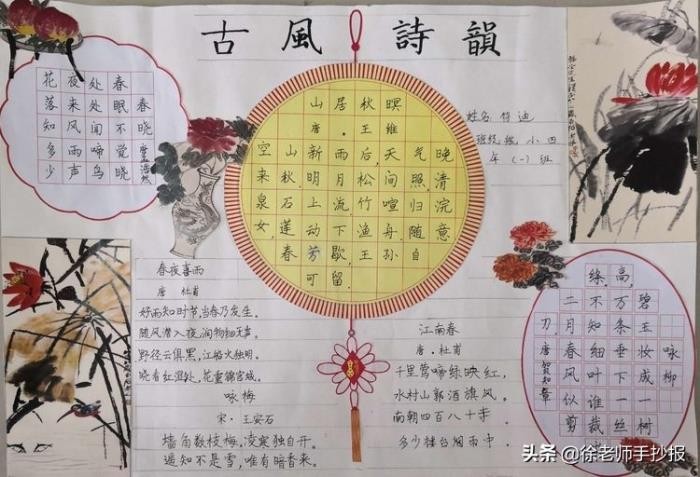 古風詩韻
春晓
唐孟浩然
春眠不觉晓
处处闻啼鸟
夜来风雨声
花落知多少
山居秋暝
唐·王维
空山新雨后天气晚
来秋,明月松间照,清
泉石上流。竹喧归浣
女,莲动下渔舟。随意
春芳歇,王孙自
可留。
班级:小四
年(一)班
春夜喜雨
唐 杜甫
好雨知时节,当春乃发生。
随风潜入夜,润物细无声。
野径云俱黑,江船火独明。
晓看红湿处,花重锦官城。
咏梅
宋·王安石
墙角数枝梅,凌寒独自开。
遥知不是雪,唯有暗香来。
江南春
唐·杜甫
千里莺啼绿映红,
水村山郭酒旗风。
南朝四百八十寺,
多少楼台烟雨中。
咏柳
碧玉妆成一树
高,万条垂下一丝
绦,不知细叶谁裁
二月春风似剪
刀
唐贺知章
头条 @徐老师手抄报